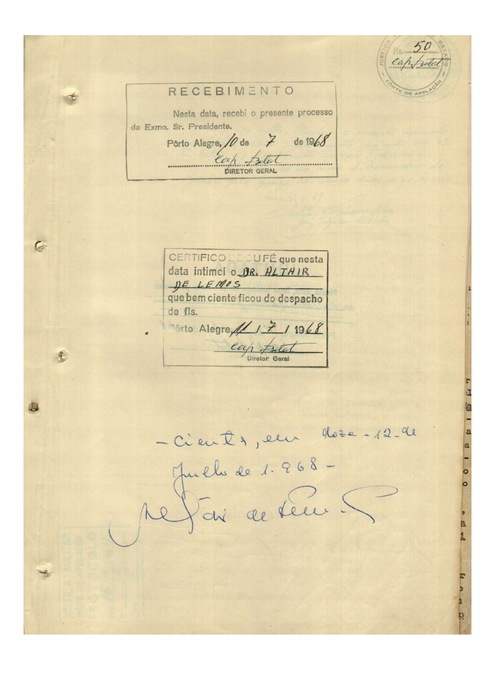 50
CORTE DE APELAÇÃO
RECEBIMENTO
Nesta data, recebi o presente processo
do Exmo. Sr. Presidente.
Pôrto Alegre, 10 de 7 de 1968
DIRETOR GERAL
CERTIFICO FÉ que nesta
data intimei o DR. ALTAIR
DE LEMOS
que bem ciente ficou do despacho
de fls.
Pôrto Alegre, 11 / 7 / 1968
Diretor Geral
- Ciente, em doze - 12 - de
Julho de 1.968 -